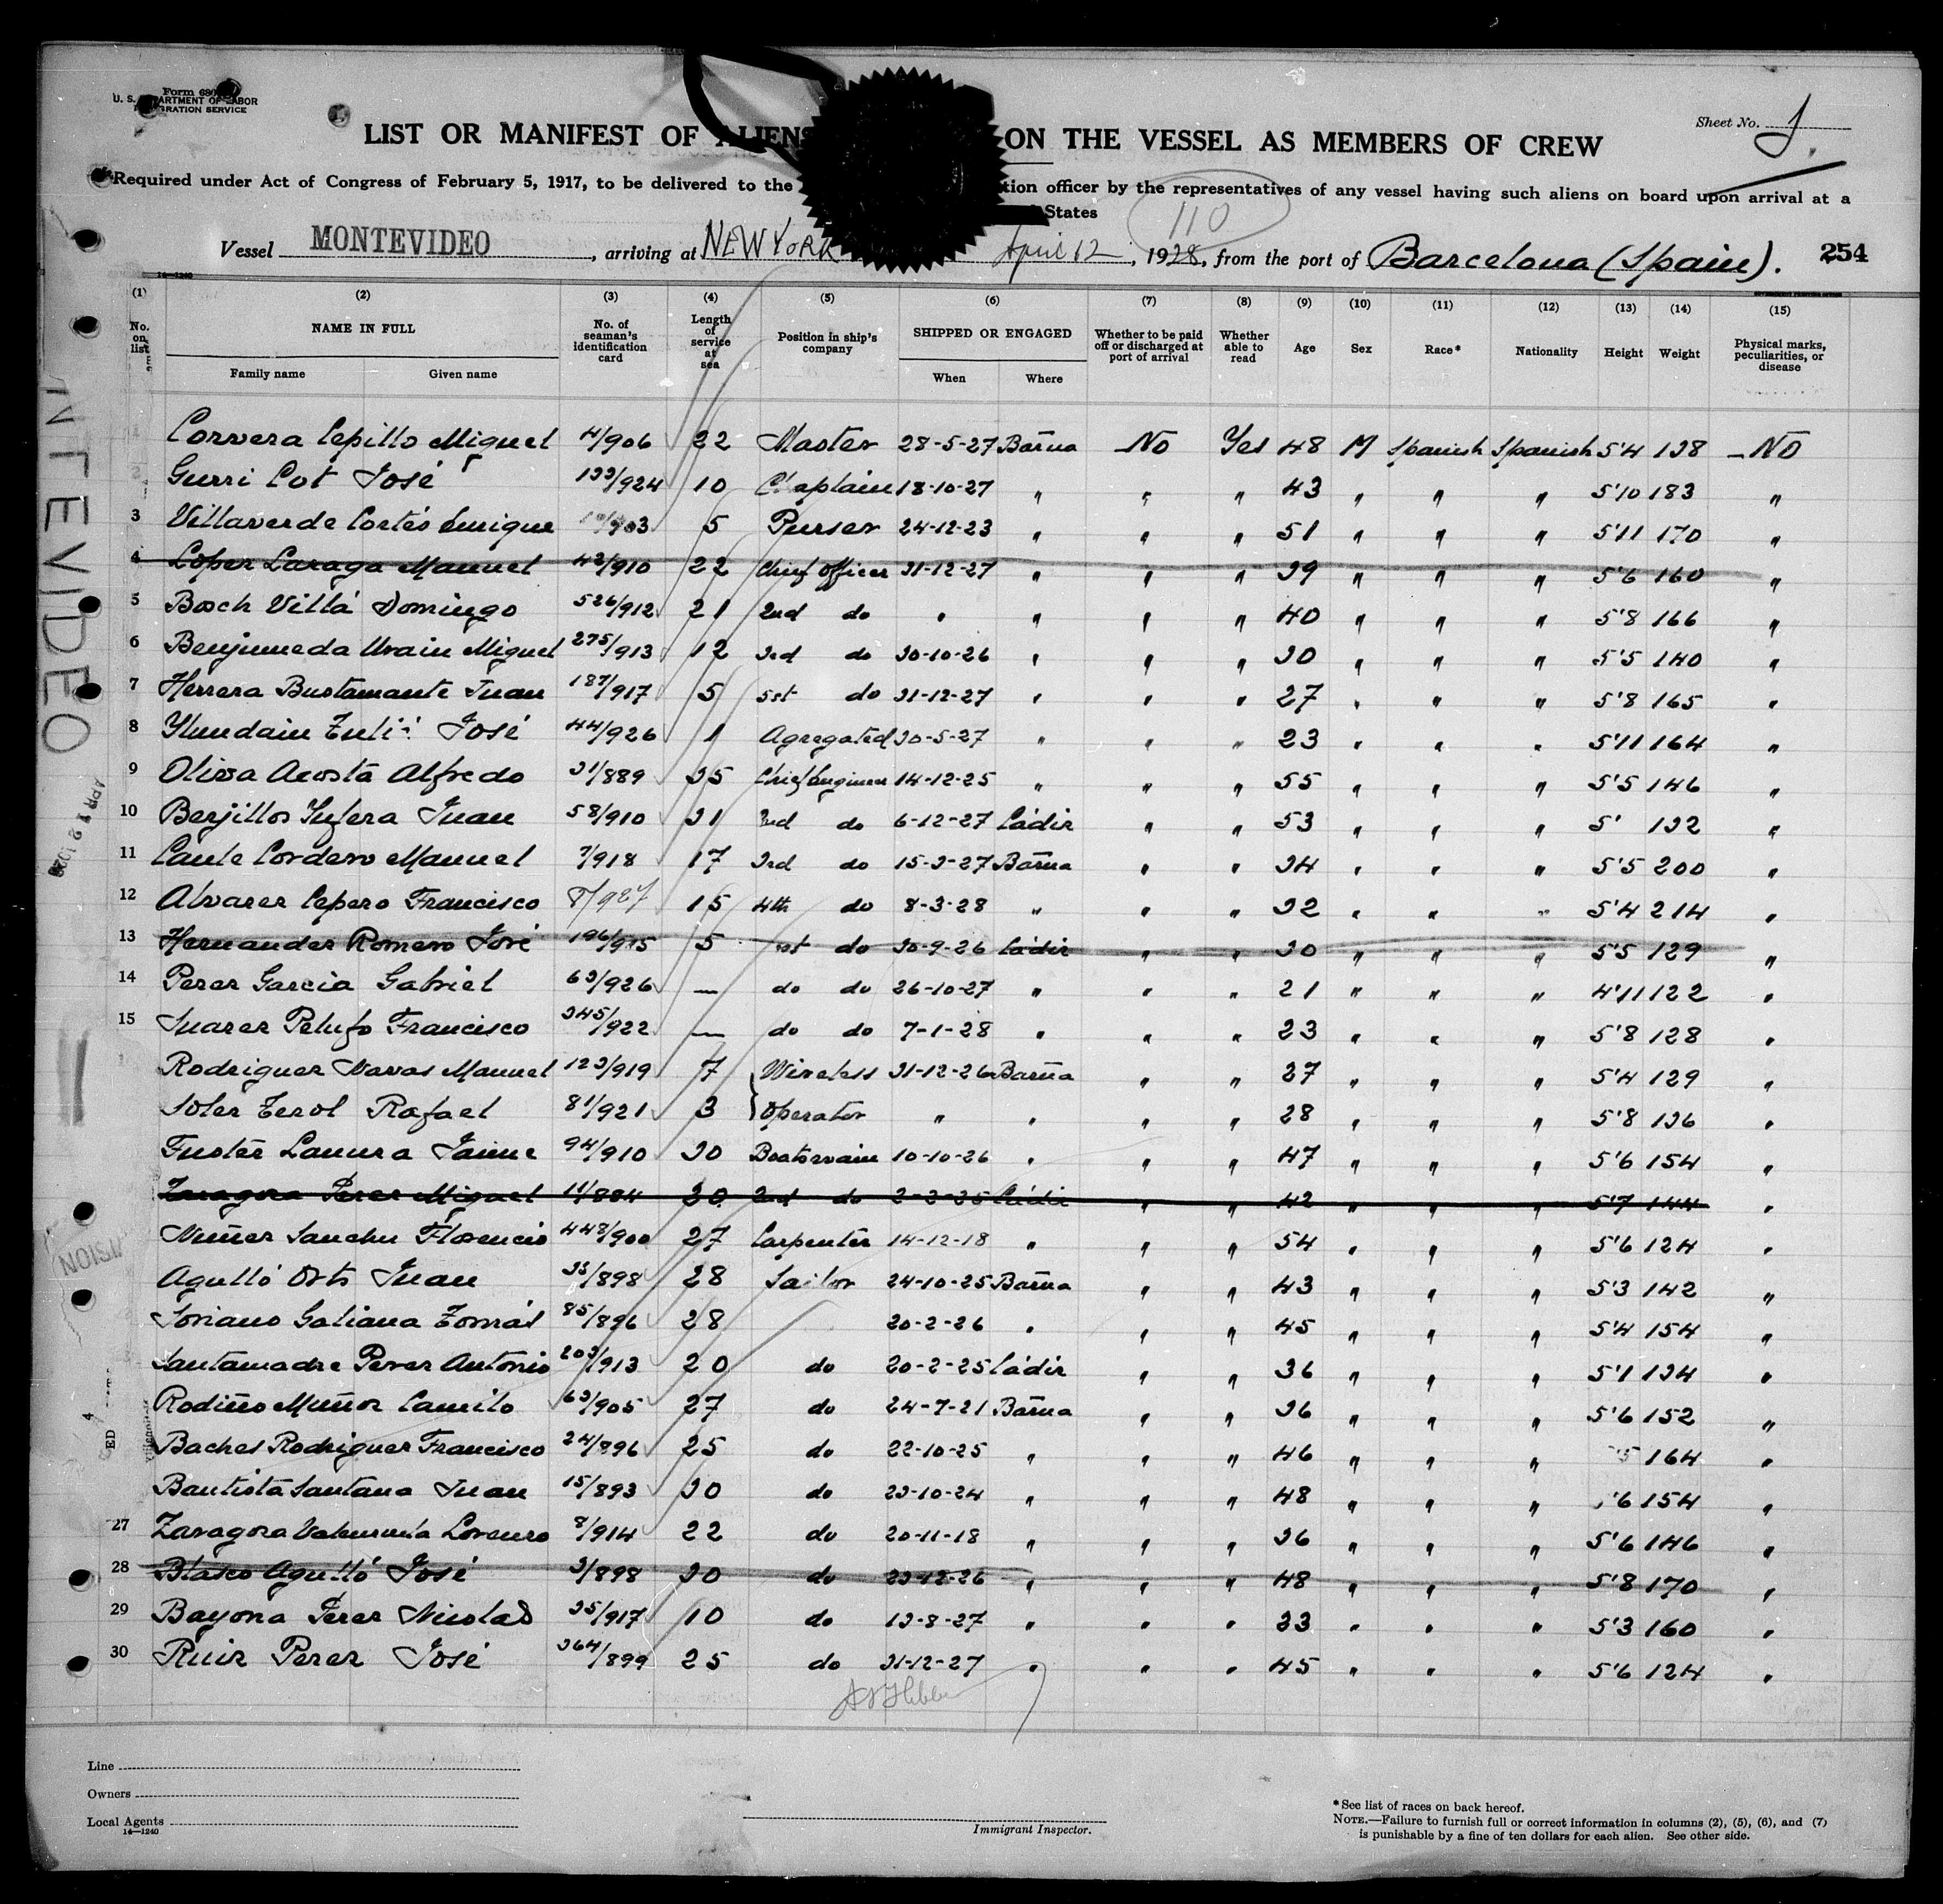 Form 680
U. S. DEPARTMENT OF LABOR
IMMIGRATION SERVICE
Sheet No. 1.
LIST OR MANIFEST OF ALIENS ON THE VESSEL AS MEMBERS OF CREW
Required under Act of Congress of February 5, 1917, to be delivered to the tion officer by the representatives of any vessel having such aliens on board upon arrival at a
States
110
Vessel MONTEVIDEO, arriving at NEW YORK April 12, 1928, from the port of Barcelona (Spain). 254
14—1240
(1) (2) (3) (4) (5) (6) (7) (8) (9) (10) (11) (12) (13) (14) (15)
No. on list NAME IN FULL Family name Given name No. of seaman's identification card Length of service at sea Position in ship's company SHIPPED OR ENGAGED When Where Whether to be paid off or discharged at port of arrival Whether able to read Age Sex Race* Nationality Height Weight Physical marks, peculiarities, or disease
1 Corvera Cepillo Miguel 4/906 22 Master 28-5-27 Barña No Yes 48 M Spanish Spanish 5'4 138 No
2 Gurri Cot José 133/924 10 Chaplain 18-10-27 " " " 43 " " " 5'10 183 "
3 Villaverde Cortés Enrique /903 5 Purser 24-12-23 " " " 51 " " " 5'11 170 "
4 Loper Laraga Manuel 42/910 22 Chief Officer 31-12-27 " " " 39 " " " 5'6 160 "
5 Bosch Villá Domingo 526/912 21 2nd do " " " " 40 " " " 5'8 166 "
6 Benjumeda Urain Miguel 275/913 12 3rd do 30-10-26 " " " 30 " " " 5'5 140 "
7 Herrera Bustamante Juan 187/917 5 5st do 31-12-27 " " " 27 " " " 5'8 165 "
8 José 44/926 1 Agregated 30-5-27 " " " 23 " " " 5'11 164 "
9 Oliva Acosta Alfredo 31/889 35 Chief Engineer 14-12-25 " " " 55 " " " 5'5 146 "
10 Berjillos Juan 58/910 31 2nd do 6-12-27 Cádiz " " 53 " " " 5' 132 "
11 Cante Cordero Manuel 7/918 17 3rd do 15-3-27 Barña " " 34 " " " 5'5 200 "
12 Alvarez Cepero Francisco 8/927 15 4th do 8-3-28 " " " 32 " " " 5'4 214 "
13 Hernandez Romero José 196/915 5 st do 30-9-26 Cádiz " " 30 " " " 5'5 129 "
14 Perez Garcia Gabriel 63/926 — do do 26-10-27 " " " 21 " " " 4'11 122 "
15 Suarez Pelufo Francisco 345/922 — do do 7-1-28 " " " 23 " " " 5'8 128 "
Rodriguez Navas Manuel 123/919 7 Wireless 31-12-26 Barña " " 27 " " " 5'4 129 "
Soler Terol Rafael 81/921 3 Operator " " " " 28 " " " 5'8 136 "
Fuster Lamura Jaime 94/910 30 Boatswain 10-10-26 " " " 47 " " " 5'6 154 "
Zaragoza Perez Miguel 11/884 30 2nd do 2-2-25 Cádiz " " 42 " " " 5'7 144 "
Nuñez Sanchez Florencio 448/900 27 Carpenter 14-12-18 " " " 54 " " " 5'6 124 "
Agulló Orts Juan 33/898 28 Sailor 24-10-25 Barña " " 43 " " " 5'3 142 "
Soriano Galiana Tomás 85/896 28 20-2-26 " " " 45 " " " 5'4 154 "
Santamadre Perez Antonio 203/913 20 do 20-2-25 Cádiz " " 36 " " " 5'1 134 "
Rodiño Muñoz Camilo 63/905 27 do 24-7-21 Barña " " 36 " " " 5'6 152 "
Baches Rodriguez Francisco 24/896 25 do 22-10-25 " " " 46 " " " 5 164 "
Bautista Santana Juan 15/893 30 do 23-10-24 " " " 48 " " " '6 154 "
27 Zaragoza Lorenzo 8/914 22 do 20-11-18 " " " 36 " " " 5'6 146 "
28 Blasco Agulló José 3/898 30 do 23-12-26 " " " 48 " " " 5'8 170 "
29 Bayona Perez Nicolas 35/917 10 do 13-8-27 " " " 33 " " " 5'3 160 "
30 Ruiz Perez José 364/899 25 do 31-12-27 " " " 45 " " " 5'6 124 "
NTEVIDEO
APR 12 1928
VISION
Line
Owners
Local Agents
14—1240
Immigrant Inspector.
*See list of races on back hereof.
NOTE.—Failure to furnish full or correct information in columns (2), (5), (6), and (7)
is punishable by a fine of ten dollars for each alien. See other side.